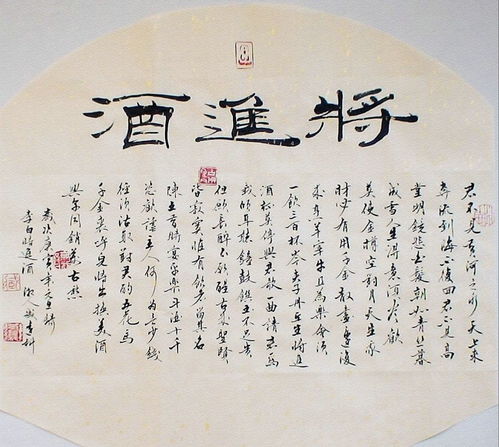 將進酒
君不見黃河之水天上來
奔流到海不復回君不見高
堂明鏡悲白髮朝如青絲暮
成雪人生得意須盡歡
莫使金樽空對月天生我
材必有用千金散盡還復
來烹羊宰牛且為樂會須
一飲三百杯岑夫子丹丘生將進
酒杯莫停與君歌一曲請君為
我耳聽鐘鼓饌玉不足貴
但願長醉不願醒古來聖賢
皆寂寞惟有飲者留其名
陳王昔時宴平樂斗酒十千
恣歡謔主人何為言少錢
徑須沽取對君酌五花馬
千金裘呼兒將出換美酒
與爾同銷萬古愁
歲次庚寅年元月錄
李白將進酒